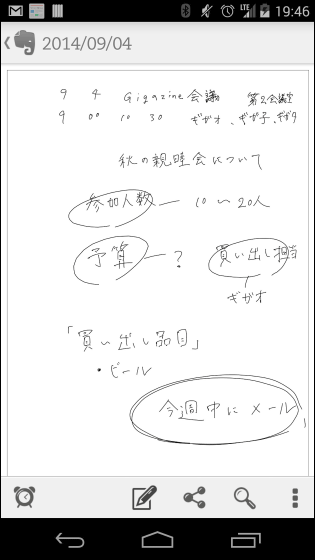 19:46
2014/09/04
9 4 Gigazine会議 第2会議室
9 00 10 30 ギガオ、ギガ子、ギガタ
秋の親睦会について
参加人数 ー 10〜20人
予算 ー ? 買い出し担当
ギガオ
「買い出し品目」
・ビール
今週中にメール!